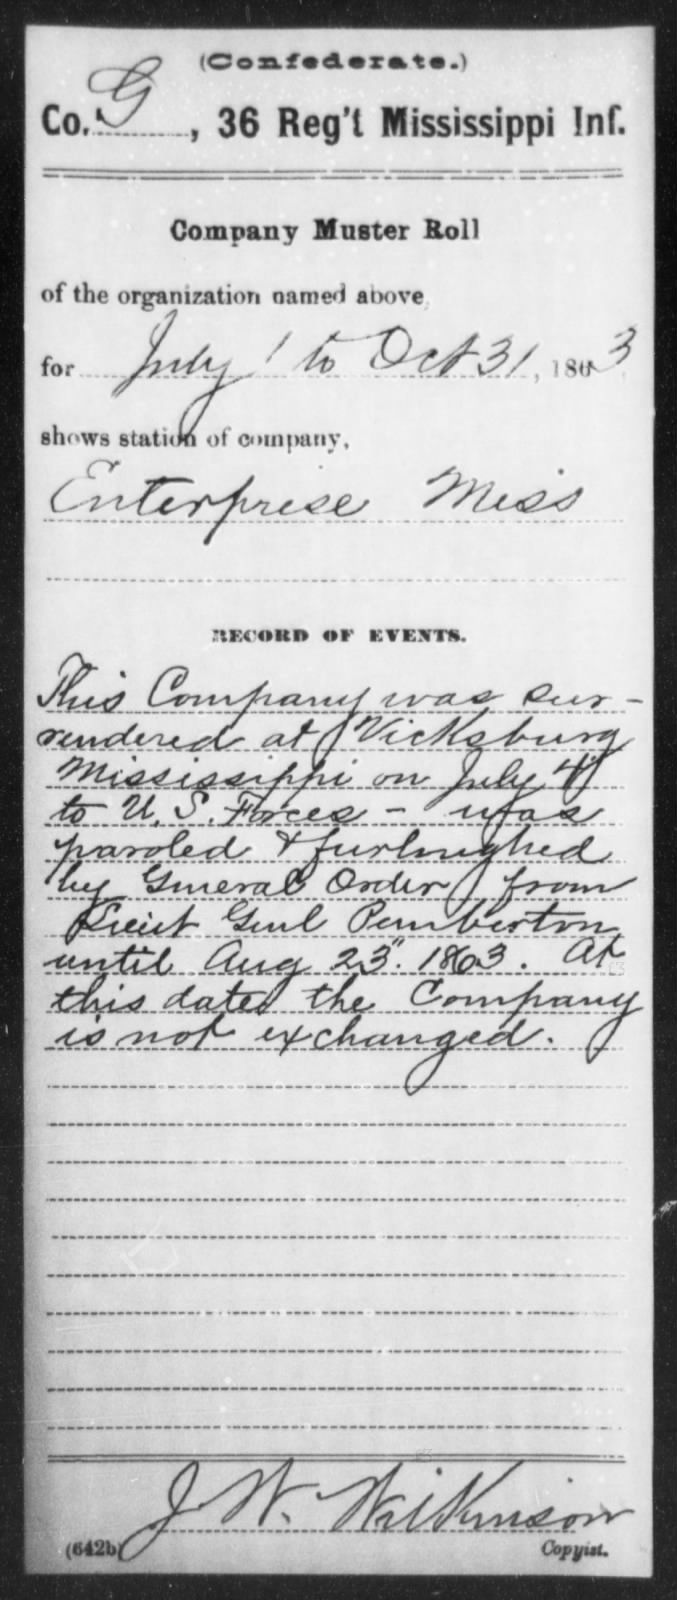 (Confederate.)
Co. G, 36 Reg't Mississippi Inf.
Company Muster Roll
of the organization named above,
for July 1 to Oct 31, 1863
shows station of company,
Enterprise Miss
RECORD OF EVENTS.
This Company was sur-
rendered at Vicksburg
Mississippi on July 4"
to U. S. Forces - was
paroled & furloughed
by General Order from
Lieut Genl Pemberton
until Aug 23". 1863. At
this date the Company
is not exchanged.
J. W. Wilkinson
(642b) Copyist.